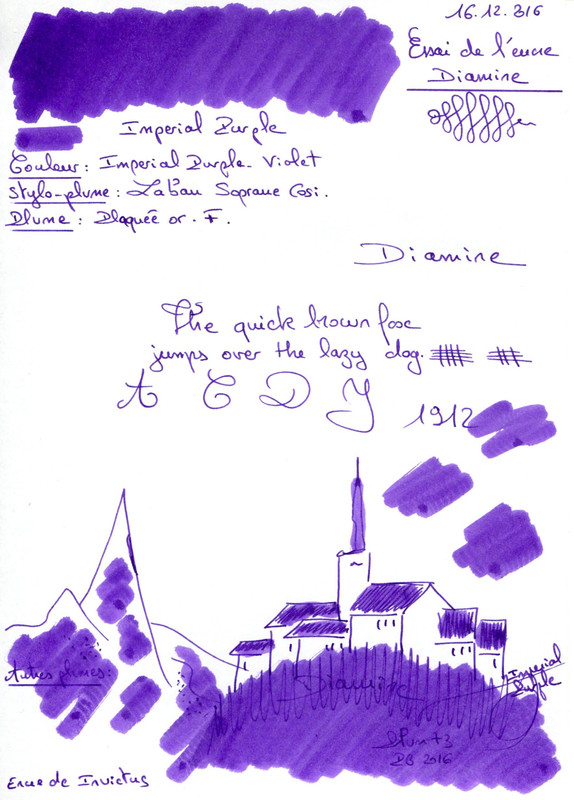 16.12.816
Essai de l'encre
Diamine
Imperial Purple
Couleur : Imperial Purple - Violet
Stylo-plume : Laban Soprane Cosi.
Plume : Plaquée or - F.
Diamine
The quick brown fox
jumps over the lazy dog.
A C D J
1912
Autres plumes :
Diamine
Imperial
Purple
DB 2016
Encre de Invictus